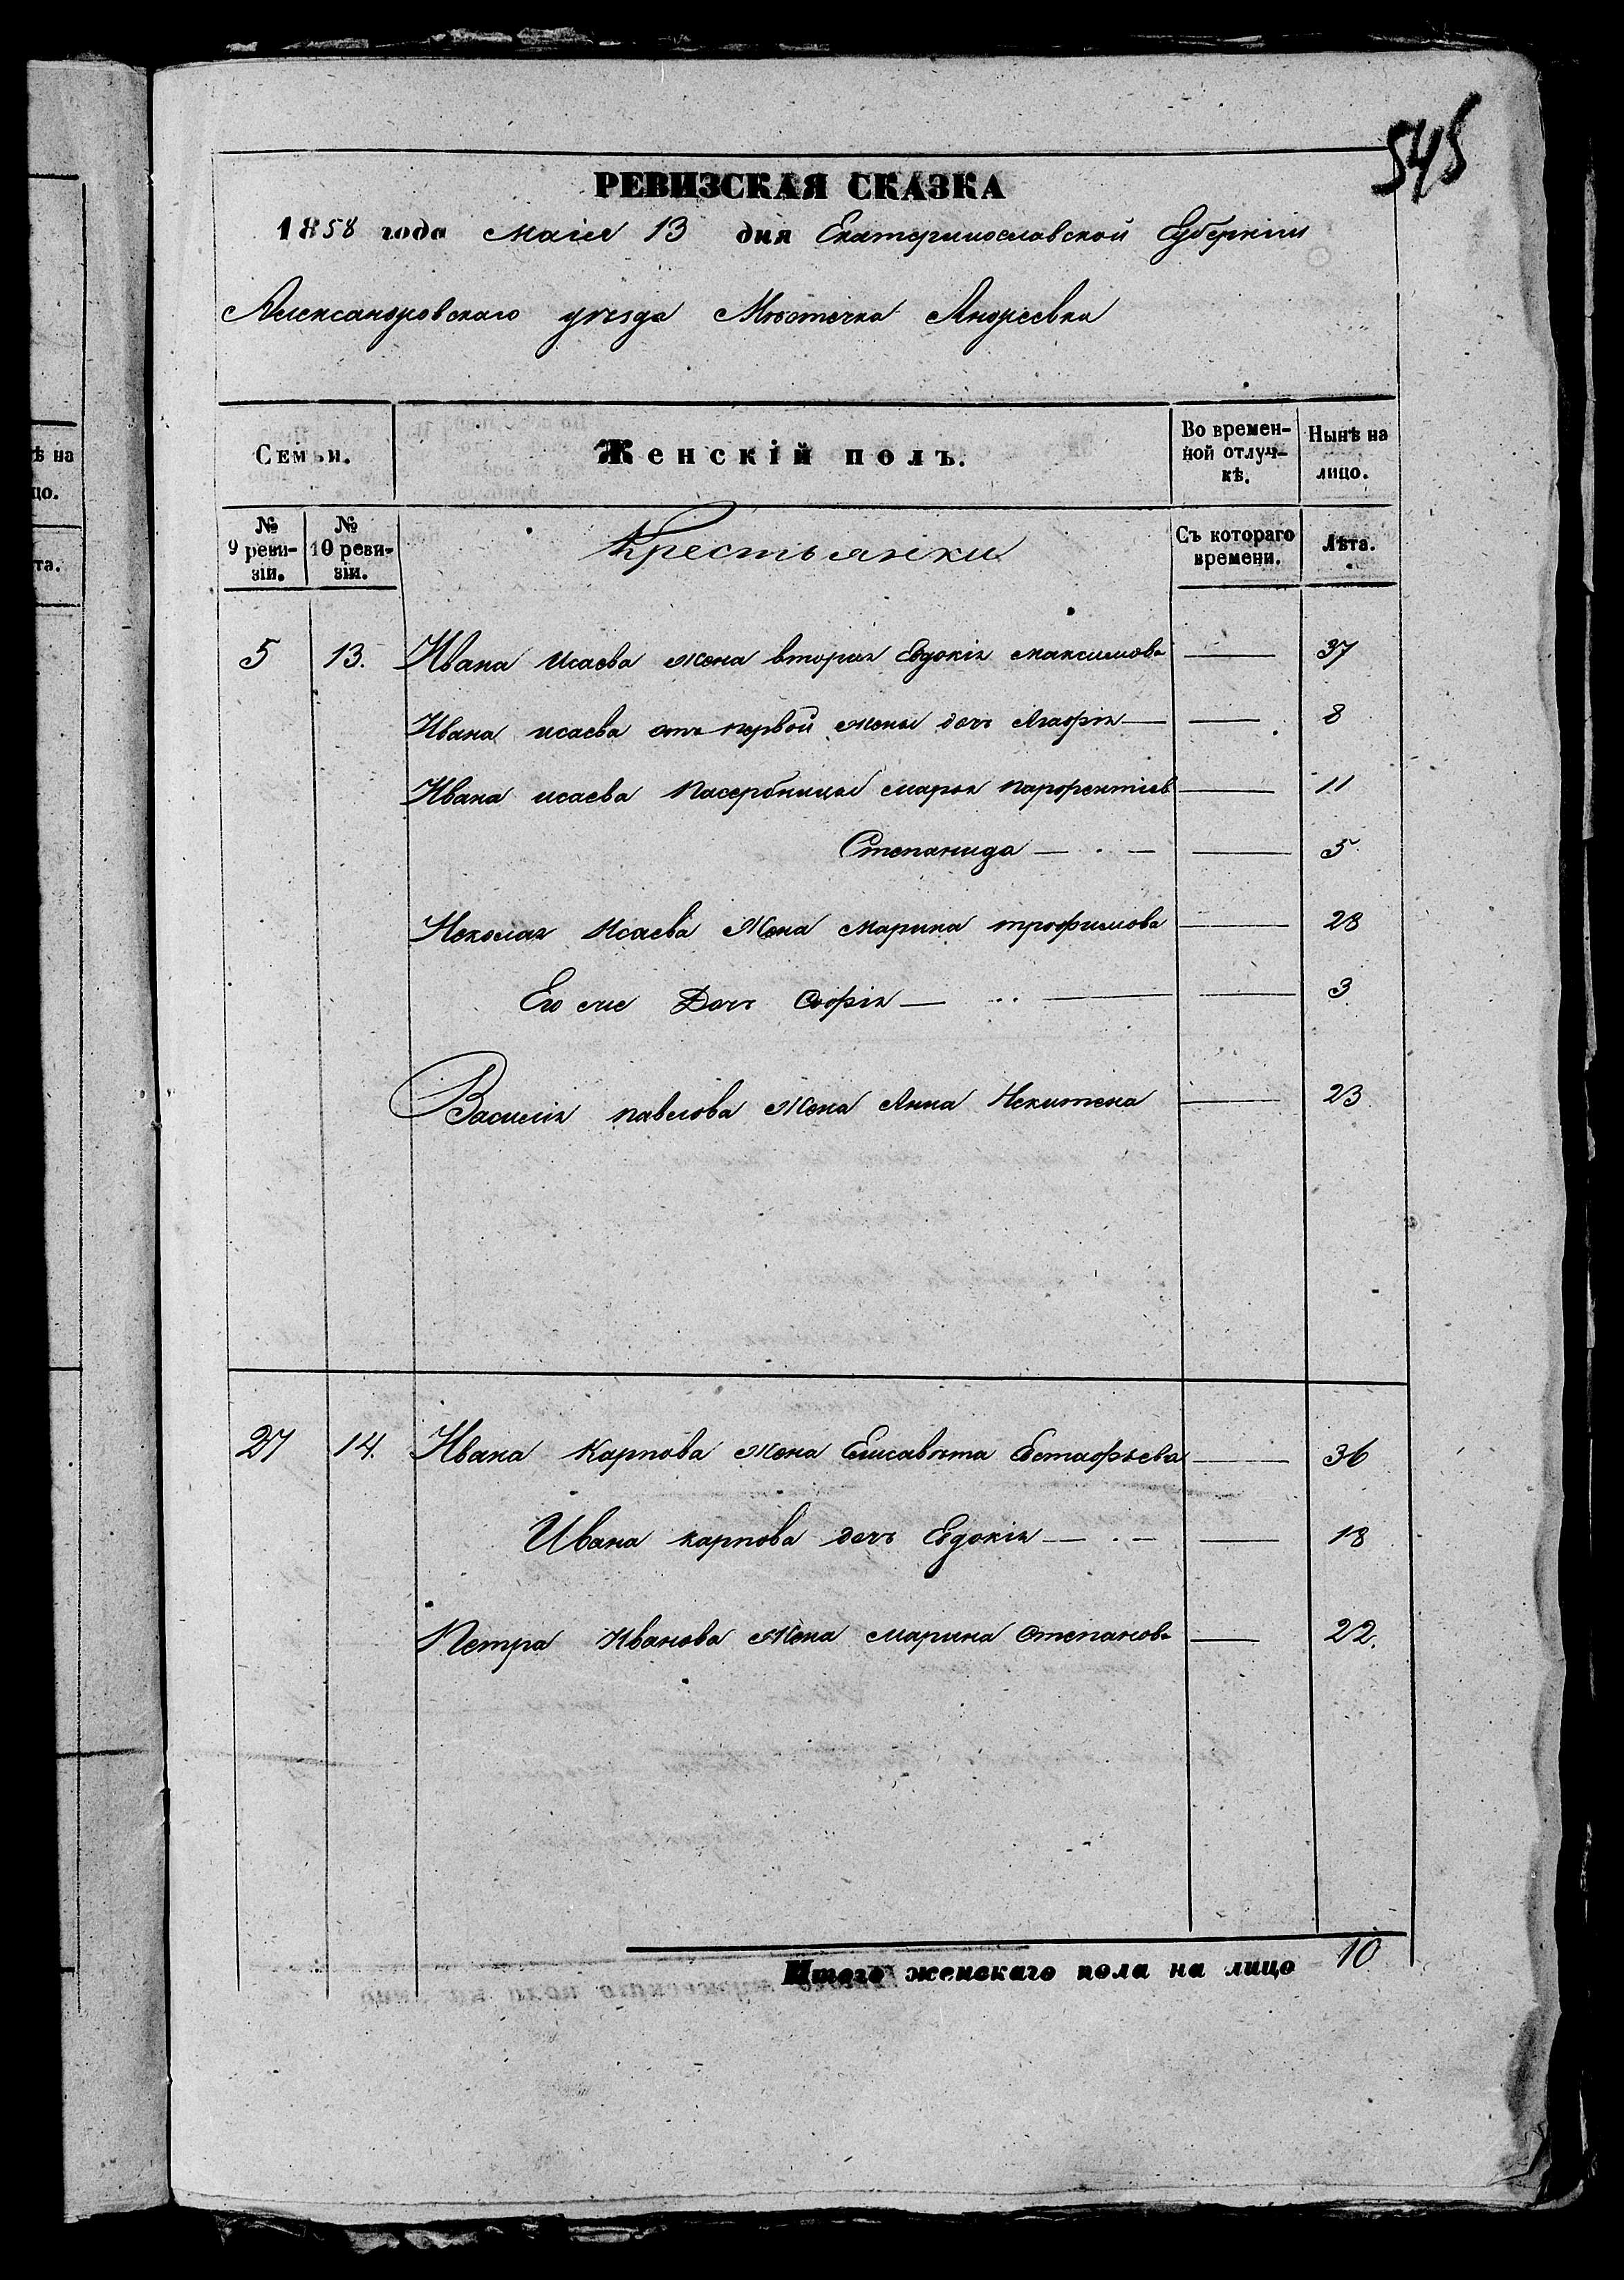 545
РЕВИЗСКАЯ СКАЗКА
1858 года Маія 13 дня Екатеринославской Губерніи
Александровскаго уѣзда Мѣстечка Андреевки
Семьи. Женскій полъ. Во времен-ной отлуч-кѣ. Нынѣ на лицо.
№ 9 реви-зіи. № 10 реви-зіи. Крестьянки Съ котораго времени. Лѣта.
5 13. Ивана Исаева жена вторая Евдокія Максимова — 37
Ивана исаева отъ первой жены дочь Агафія — — 8
Ивана исаева Пасербницы Марья Парфентіев — 11
Степанида — — 5
Неколая Исаева Жена Марина трофимова — 28
Его же Дочь Софія — — 3
Василія павлова Жена Анна Некитена — 23
27 14. Ивана Карпова жена Елисавѣта Евстафьева — 36
Ивана карпова дочь Евдокія — — 18
Петра Иванова Жена Марина Степанова — 22.
Итого женскаго пола на лицо 10
ѣ на
цо.
та.